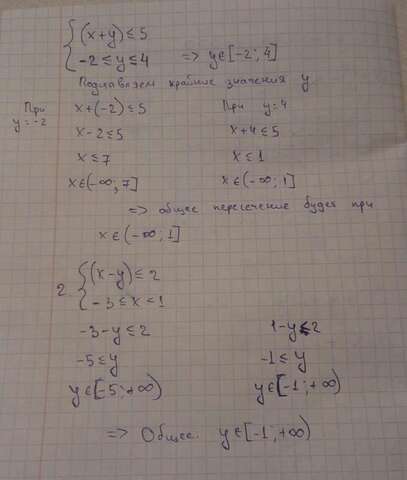 { (x+y) ≤ 5
-2 ≤ y ≤ 4 => y∈[-2; 4]
Подставляем крайние значения y
При y = -2 x+(-2) ≤ 5 При y=4
x-2 ≤ 5 x+4 ≤ 5
x ≤ 7 x ≤ 1
x∈(-∞; 7] x∈(-∞; 1]
=> общее пересечение будет при
x∈(-∞; 1]
2. { (x-y) ≤ 2
-3 ≤ x < 1
-3-y ≤ 2 1-y ≤ 2
-5 ≤ y -1 ≤ y
y∈[-5; +∞) y∈[-1; +∞)
=> Общее. y∈[-1; +∞)